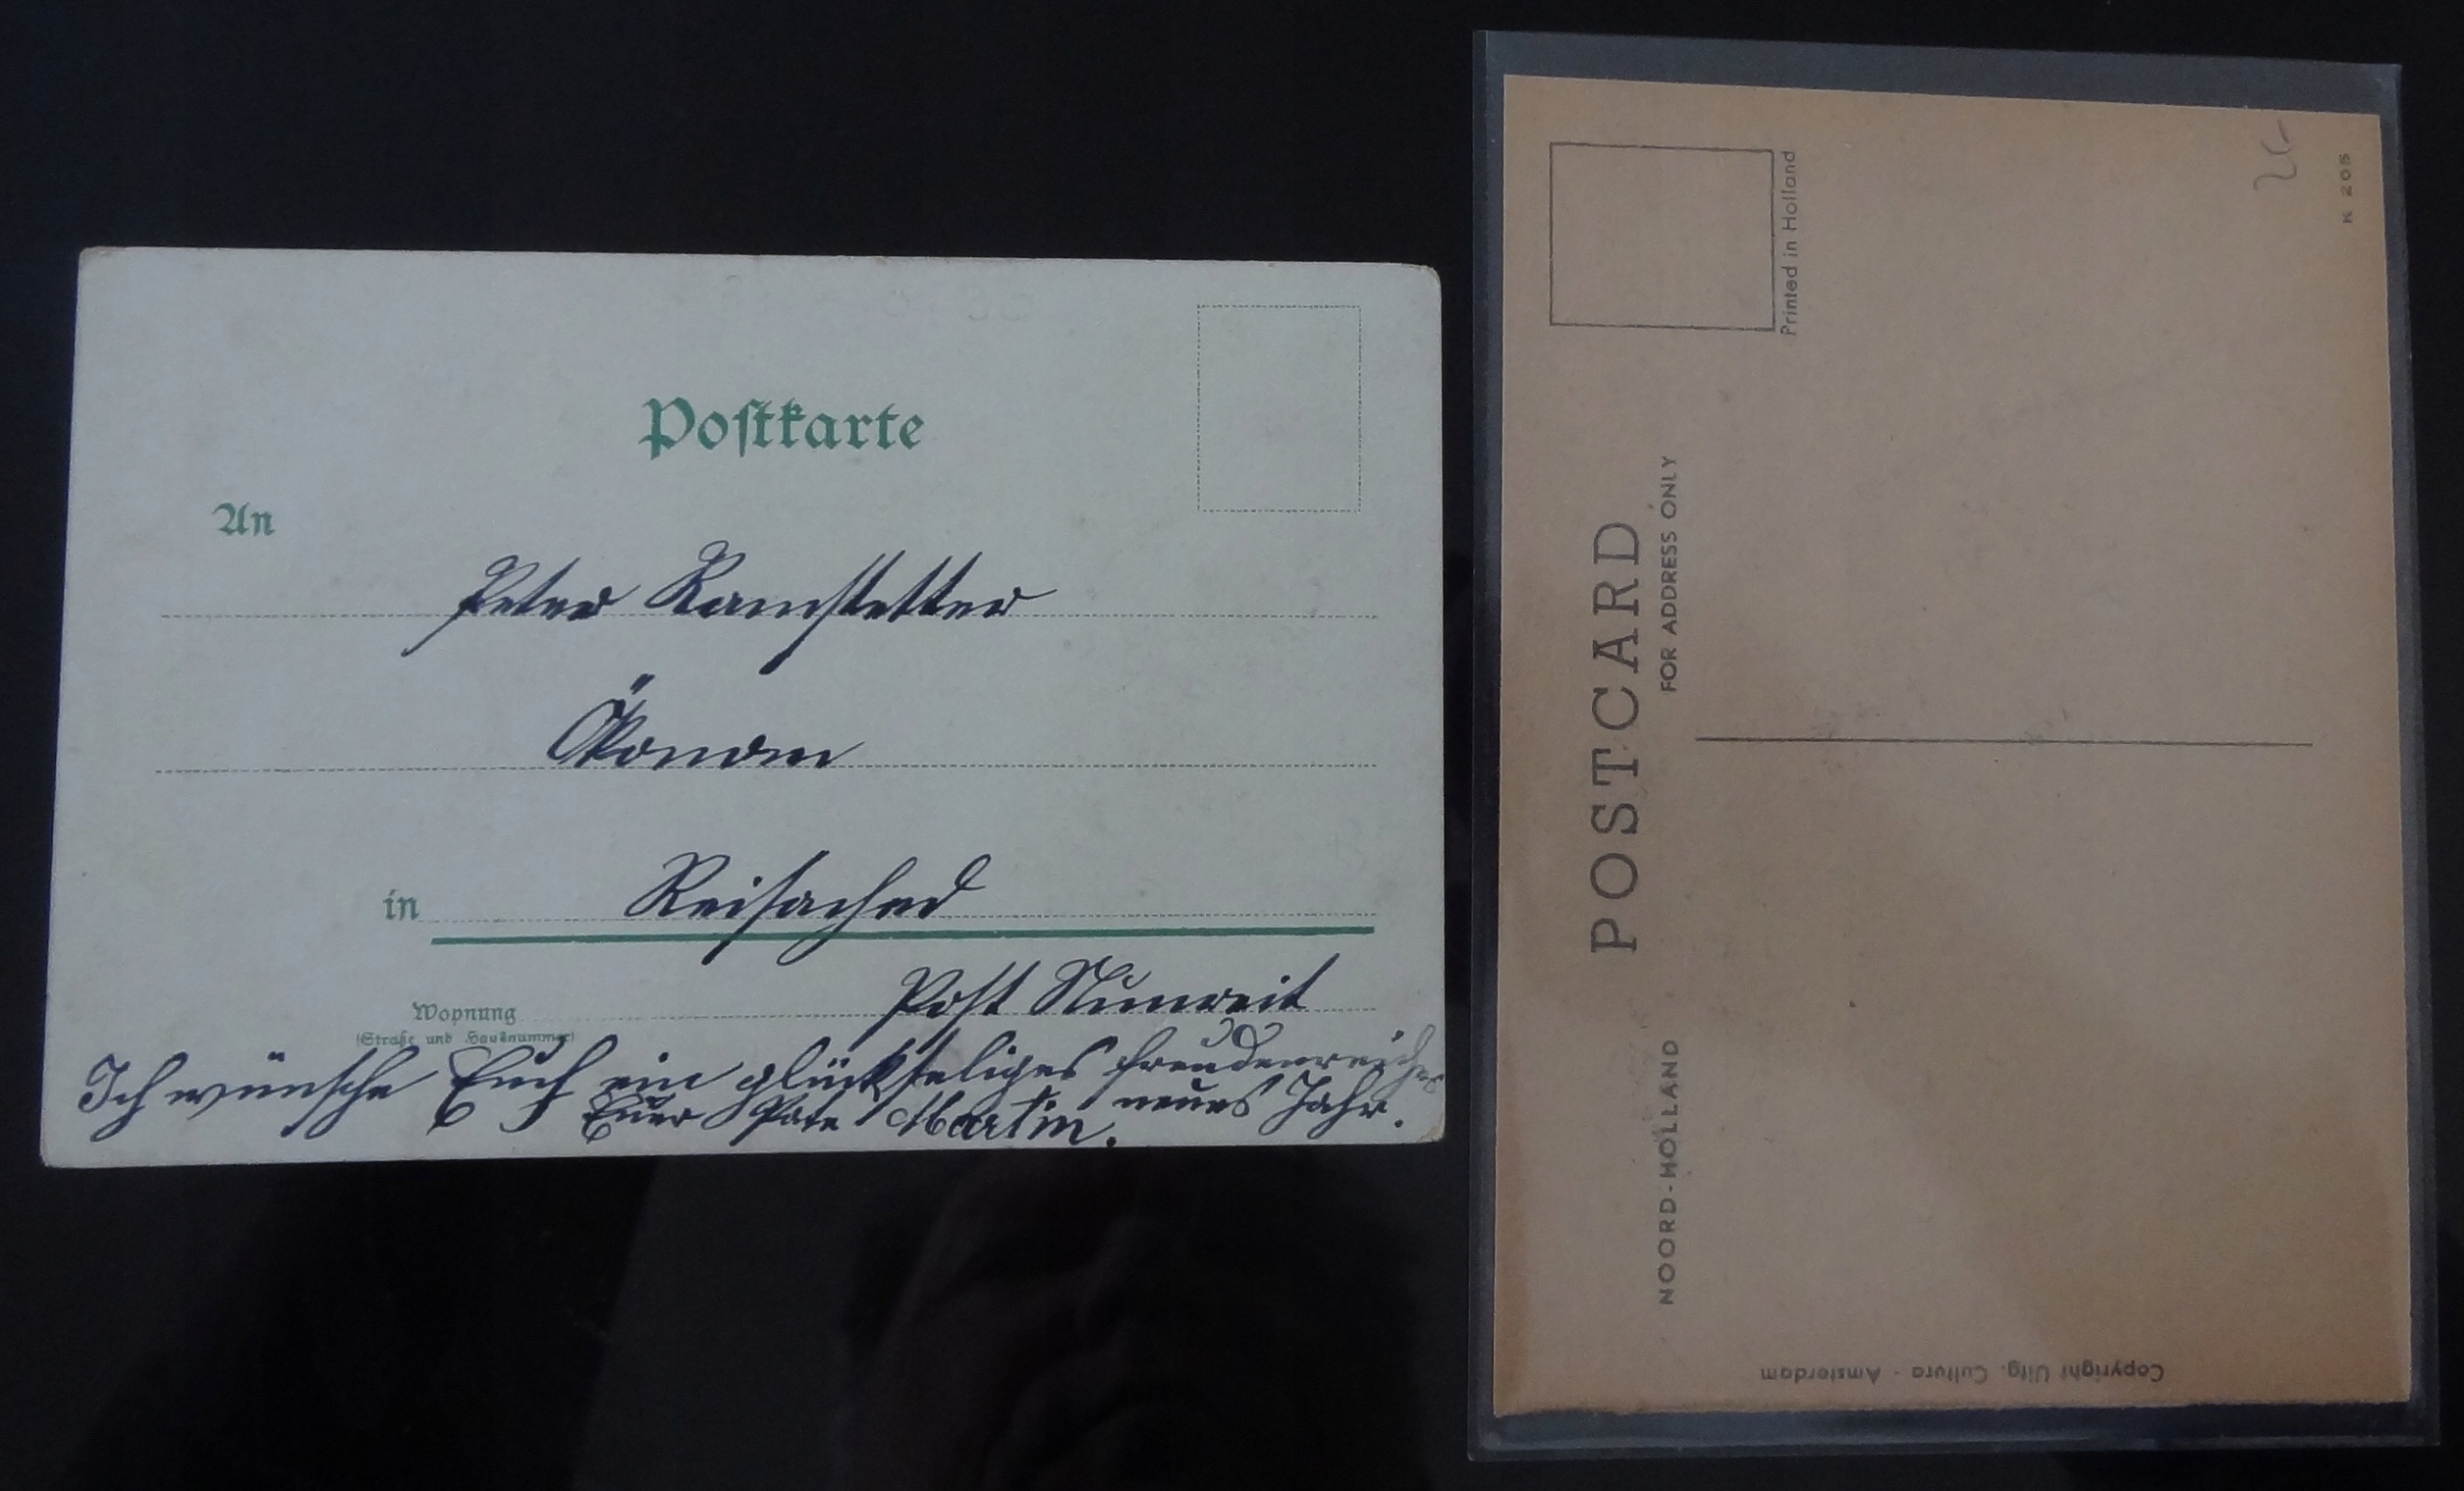 Postkarte
An
Peter Ramstetter
Ökonom
in Reisached
Wohnung Post
(Straße und Hausnummer)
Ich wünsche Euch ein glückseliges freudenreiches
neues Jahr.
Euer Pate Martin.
POSTCARD
FOR ADDRESS ONLY
NOORD-HOLLAND
Printed in Holland
K 205
Copyright Uitg. Cultura - Amsterdam